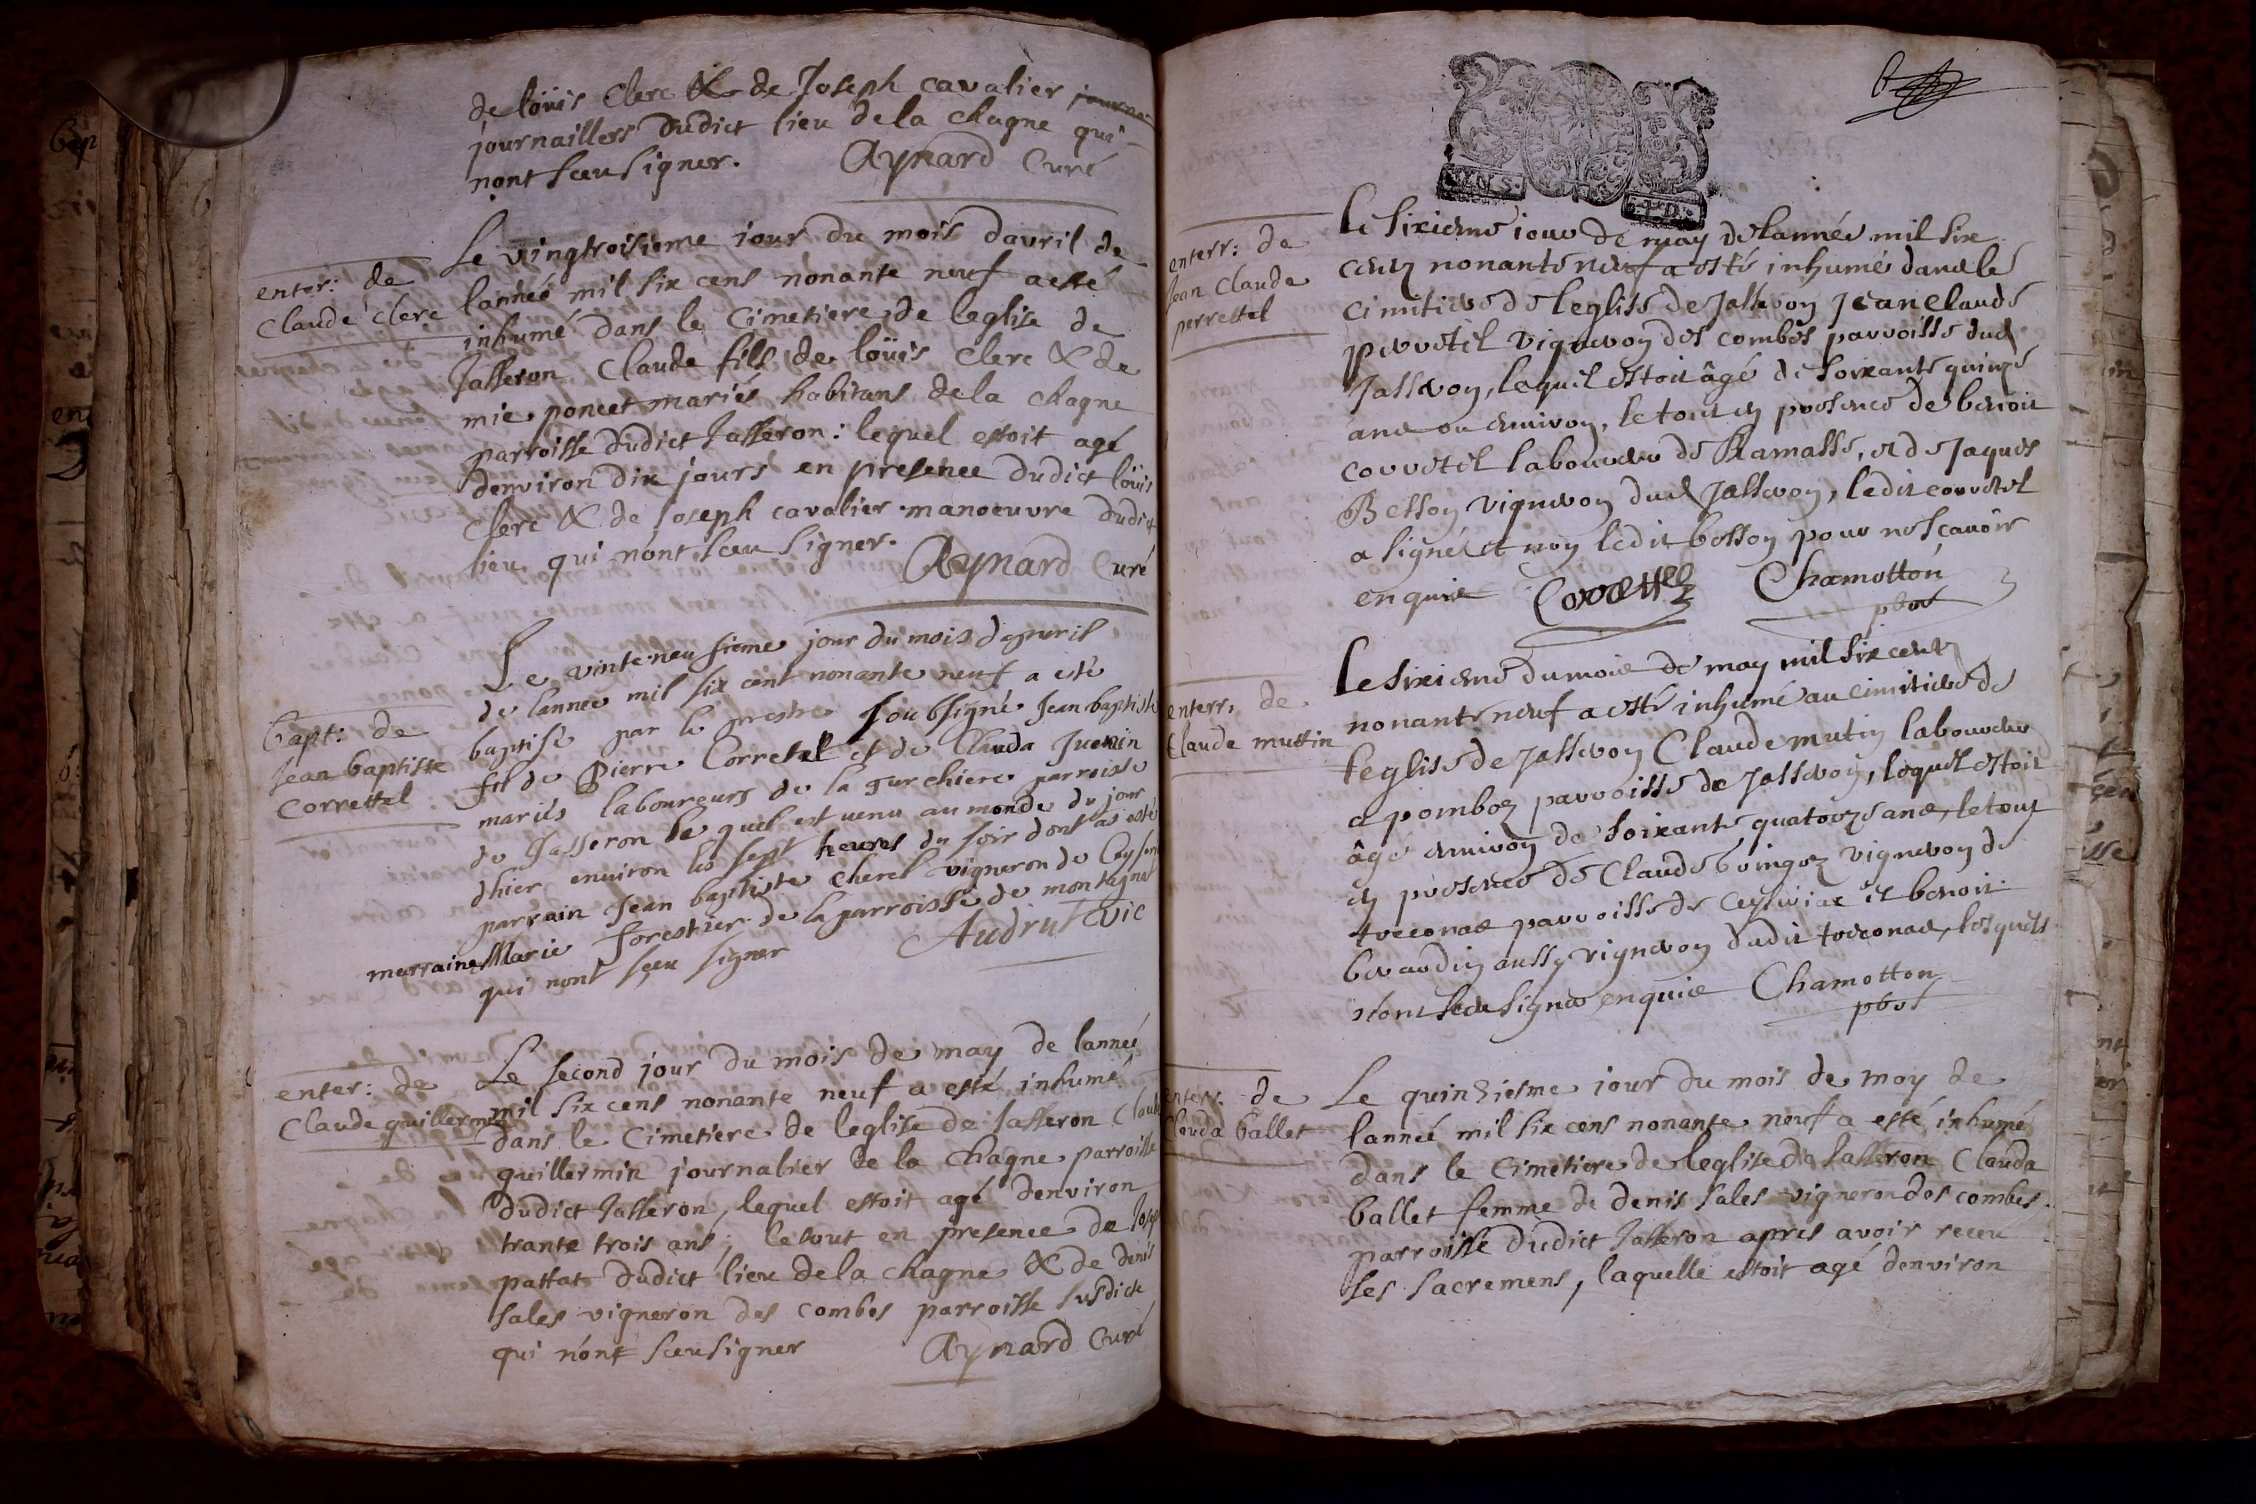 de loüis Clerc & de Joseph cavalier
journailliers dudict lieu de la chagne qui
nont sceu signer. Aynard Curé
enter: de
Claude clerc
Le vingtroisieme iour du mois davril de
lannee mil six cens nonante neuf a esté
inhumé dans le Cimetiere de leglise de
Jasseron Claude fils de loüis Clerc & de
mie poncet mariés habitans de la chagne
parroisse dudict Jasseron: lequel estoit agé
denviron dix jours en presence dudict loüis
Clerc & de Joseph cavalier manoeuvre dudict
lieu qui n'ont sceu signer.
Aynard Curé
bapt: de
Jean baptiste
correttel
Le vinte neufsieme jour du mois dapuril
de lannee mil six cent nonante neuf a esté
baptisé par le prestre soubsigné Jean baptiste
fil de Pierre Corretel et de Clauda Juenin
mariés laboureurs de la gurchiere parroisse
de Jasseron le quel est venu au monde du jour
dhier environ les sept heures du soir dont as esté
parrain Jean baptiste cherel vigneron de Ceyseria
marraine Marie forestier de la parroisse de montagnat
qui nont sceu signer Audrut vic
enter: de
Claude guillermin
Le second jour du mois de may de lanneé
mil six cens nonante neuf a esté inhumé
dans le Cimetiere de leglise de Jasseron Claude
guillermin journalier de la chagne parroisse
dudict Jasseron, lequel estoit agé denviron
trante trois ans; le tout en presence de Josep
pattat dudict lieu de la chagne & de denis
sales vigneron des combes parroisse susdicte
qui n'ont sceu signer Aynard Curé
enterr: de
Jean Claude
perrettel
le sixieme iour de may de lannée mil six
cens nonante neuf a esté inhumé dans le
cimitiere de leglise de Jasseron Jean Claude
perretel vigneron des combes parroisse dud
Jasseron, lequel estoit âgé de soixante quinze
ans ou environ, le tout en presence de benoit
corretel laboureur de Ramasse, et de Jaques
Besson vigneron dud Jasseron, ledit corretel
a signé et non ledit besson pour ne sçavoir
enquis Correttel Chamotton
pbre
enterr, de
Claude muttin
Le sixieme du mois de may mil six cens
nonante neuf a esté inhumé au cimitiere de
leglise de Jasseron Claude mutin laboureur
a pomboz parroisse de Jasseron, lequel estoit
âgé environ de soixante quatorze ans, le tout
en presence de Claude boingoz vigneron de
treconas parroisse de ceyseriat et benoit
beraudin aussy vigneron dudit treconas, lesquels
nont sceu signer enquis Chamotton
pbre
enterr. de
Clauda ballet
Le quinziesme iour du mois de may de
lanneé mil six cens nonante neuf a esté inhumé
dans le Cimetiere de leglise de Jasseron Clauda
ballet femme de denis sales vigneron des combes
parroisse dudict Jasseron apres avoir receu
ses sacremens, laquelle estoit agé denviron